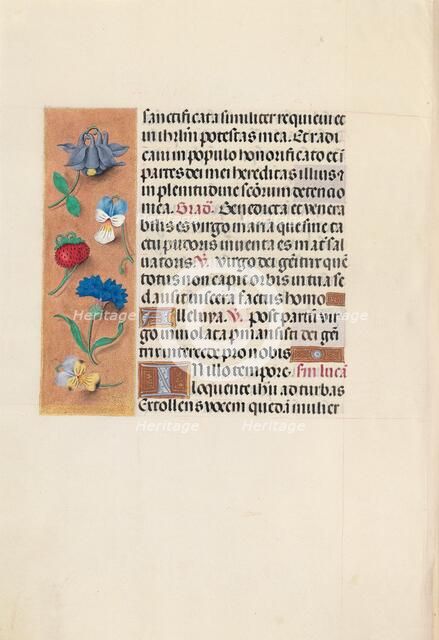 sanctificata similiter requieui et
in ihrlm̄ potestas mea. Et radi
caui in populo honorificato et ī
partes dei mei hereditas illius ⁊
in plenitudine sc̄orum detencio
mea. Grad̄. Benedicta et venera
bilis es virgo maria que sine ta
ctu pudoris inuenta es mat̄ sal
uatoris. V. Virgo dei genitrix quē
totus non capit orbis in tua se
clausit viscera factus homo
Alleluya. V. post partū vir
go inuiolata pmansisti dei gēi
trix intercede pro nobis
In illo tempore. Sm̄ lucā
Loquente ihū ad turbas
Extollens vocem quedā mulier
Heritage
Heritage
Heritage
Heritage
Heritage
Heritage